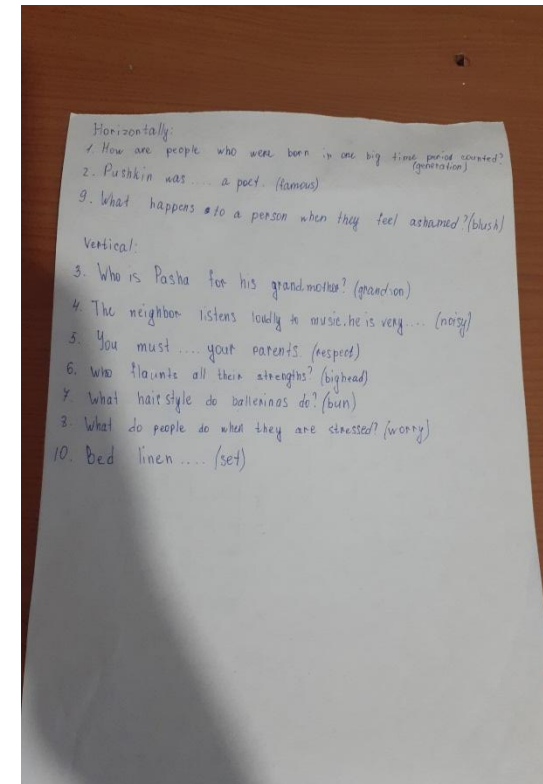 Horizontally:
1. How are people who were born in one big time period counted?
(generation)
2. Pushkin was .... a poet. (famous)
9. What happens to a person when they feel ashamed? (blush)
Vertical:
3. Who is Pasha for his grandmother? (grandson)
4. The neighbor listens loudly to music. he is very.... (noisy)
5. You must .... your parents (respect)
6. Who flaunts all their strengths? (bighead)
7. What hair style do ballerinas do? (bun)
8. What do people do when they are stressed? (worry)
10. Bed linen .... (set)